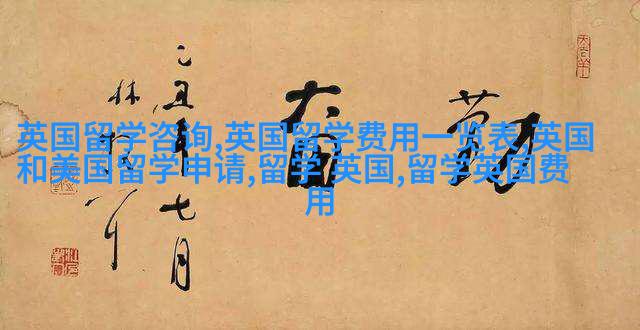 英国留学咨询,英国留学费用一览表,英国
和美国留学申请,留学 英国,留学英国费
用
勤奮
乙丑年七月
林